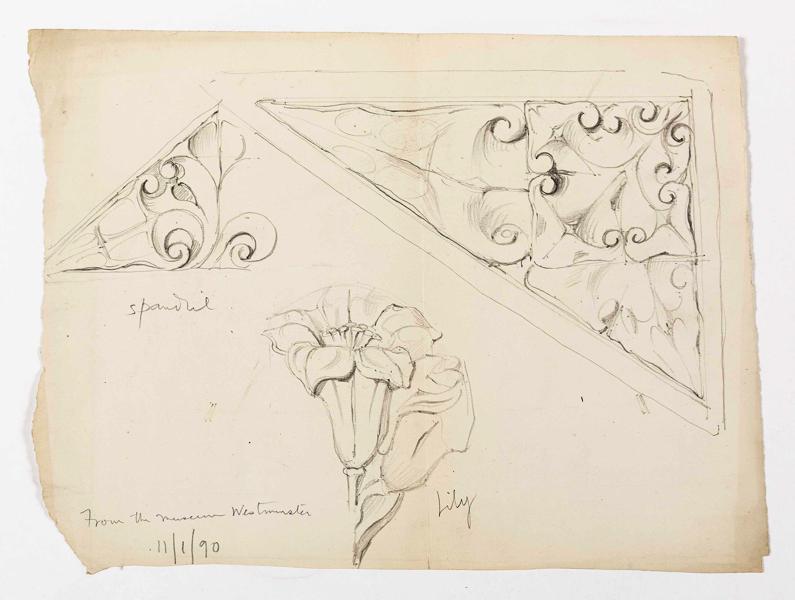 spandril
Lily
From the museum Westminster
11/1/90